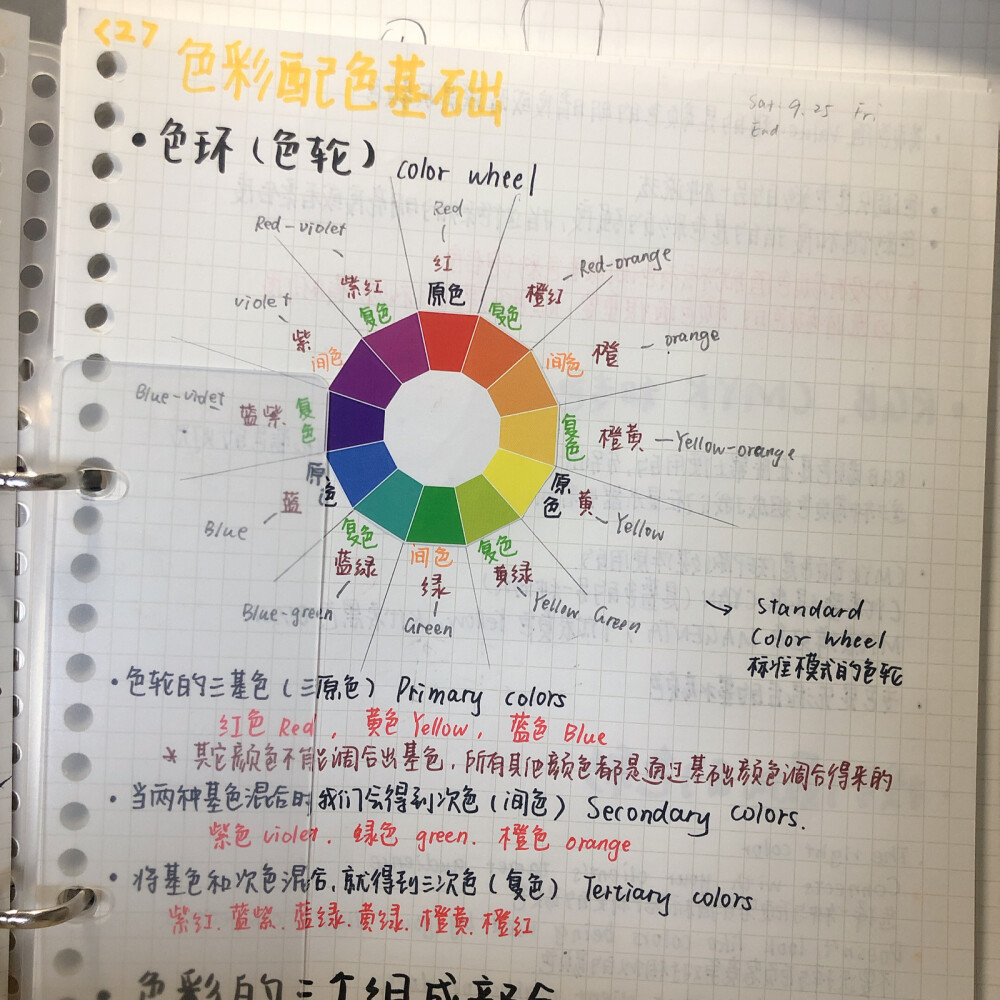 <2>
色彩配色基础
Sat 9.25 Fri
End
• 色环(色轮) color wheel
Red
红
原色
Red-violet
紫红
复色
Red-orange
橙红
复色
violet
紫
间色
orange
橙
间色
Blue-violet
蓝紫
复色
Yellow-orange
橙黄
复色
Blue
蓝
原色
Yellow
黄
原色
Blue-green
蓝绿
复色
Green
绿
间色
Yellow Green
黄绿
复色
→ Standard
Color Wheel
标准模式的色轮
• 色轮的三基色(三原色) Primary colors
红色 Red, 黄色 Yellow, 蓝色 Blue
* 其它颜色不能调合出基色,所有其他颜色都是通过基础颜色调合得来的
• 当两种基色混合时我们会得到次色(间色) Secondary colors.
紫色 violet. 绿色 green. 橙色 orange
• 将基色和次色混合,就得到三次色(复色) Tertiary colors
紫红.蓝紫.蓝绿.黄绿.橙黄.橙红
色彩的三个组成部分